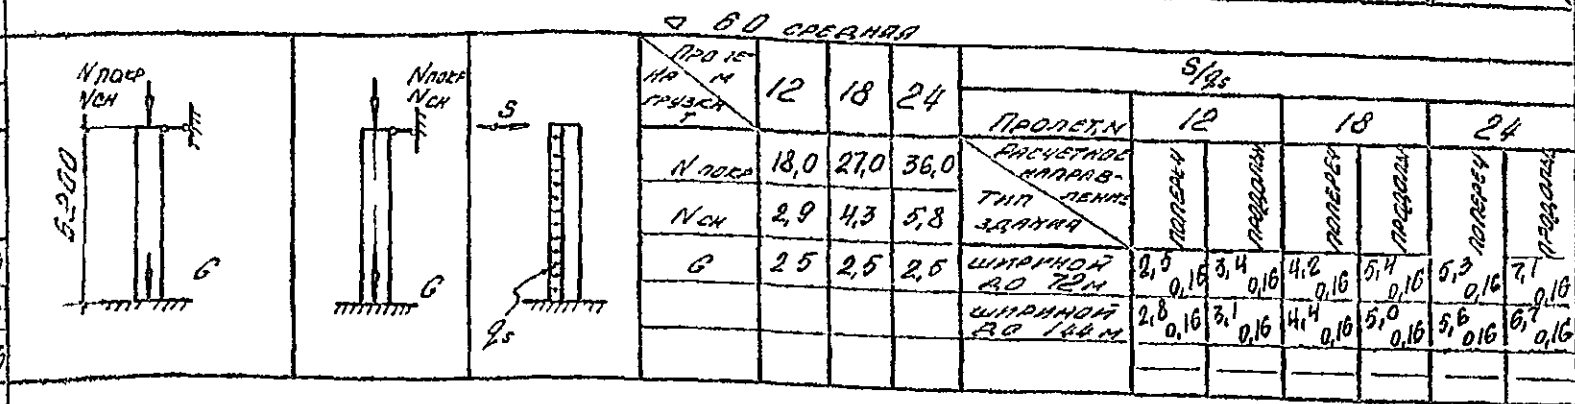 ▽ 6.0 СРЕДНЯЯ
N ПОКР
N СН
5200
G
N ПОКР
N СН
G
S
qs
ПРОЛЕТ М
НАГРУЗКА Т
12 18 24
N ПОКР 18,0 27,0 36,0
N СН 2,9 4,3 5,8
G 2 5 2,5 2,5
S/qs
ПРОЛЕТ, М 12 18 24
РАСЧЕТНОЕ НАПРАВ-
ЛЕНИЕ
ТИП
ЗДАНИЯ
ПОПЕРЕЧ ПРОДОЛЬН ПОПЕРЕЧ ПРОДОЛЬН ПОПЕРЕЧ ПРОДОЛЬН
ШИРИНОЙ
ДО 72 М
2,5 0,16 3,4 0,16 4,2 0,16 5,4 0,16 5,3 0,16 7,1 0,16
ШИРИНОЙ
ДО 144 М
2,8 0,16 3,1 0,16 4,4 0,16 5,0 0,16 5,6 0,16 6,7 0,16